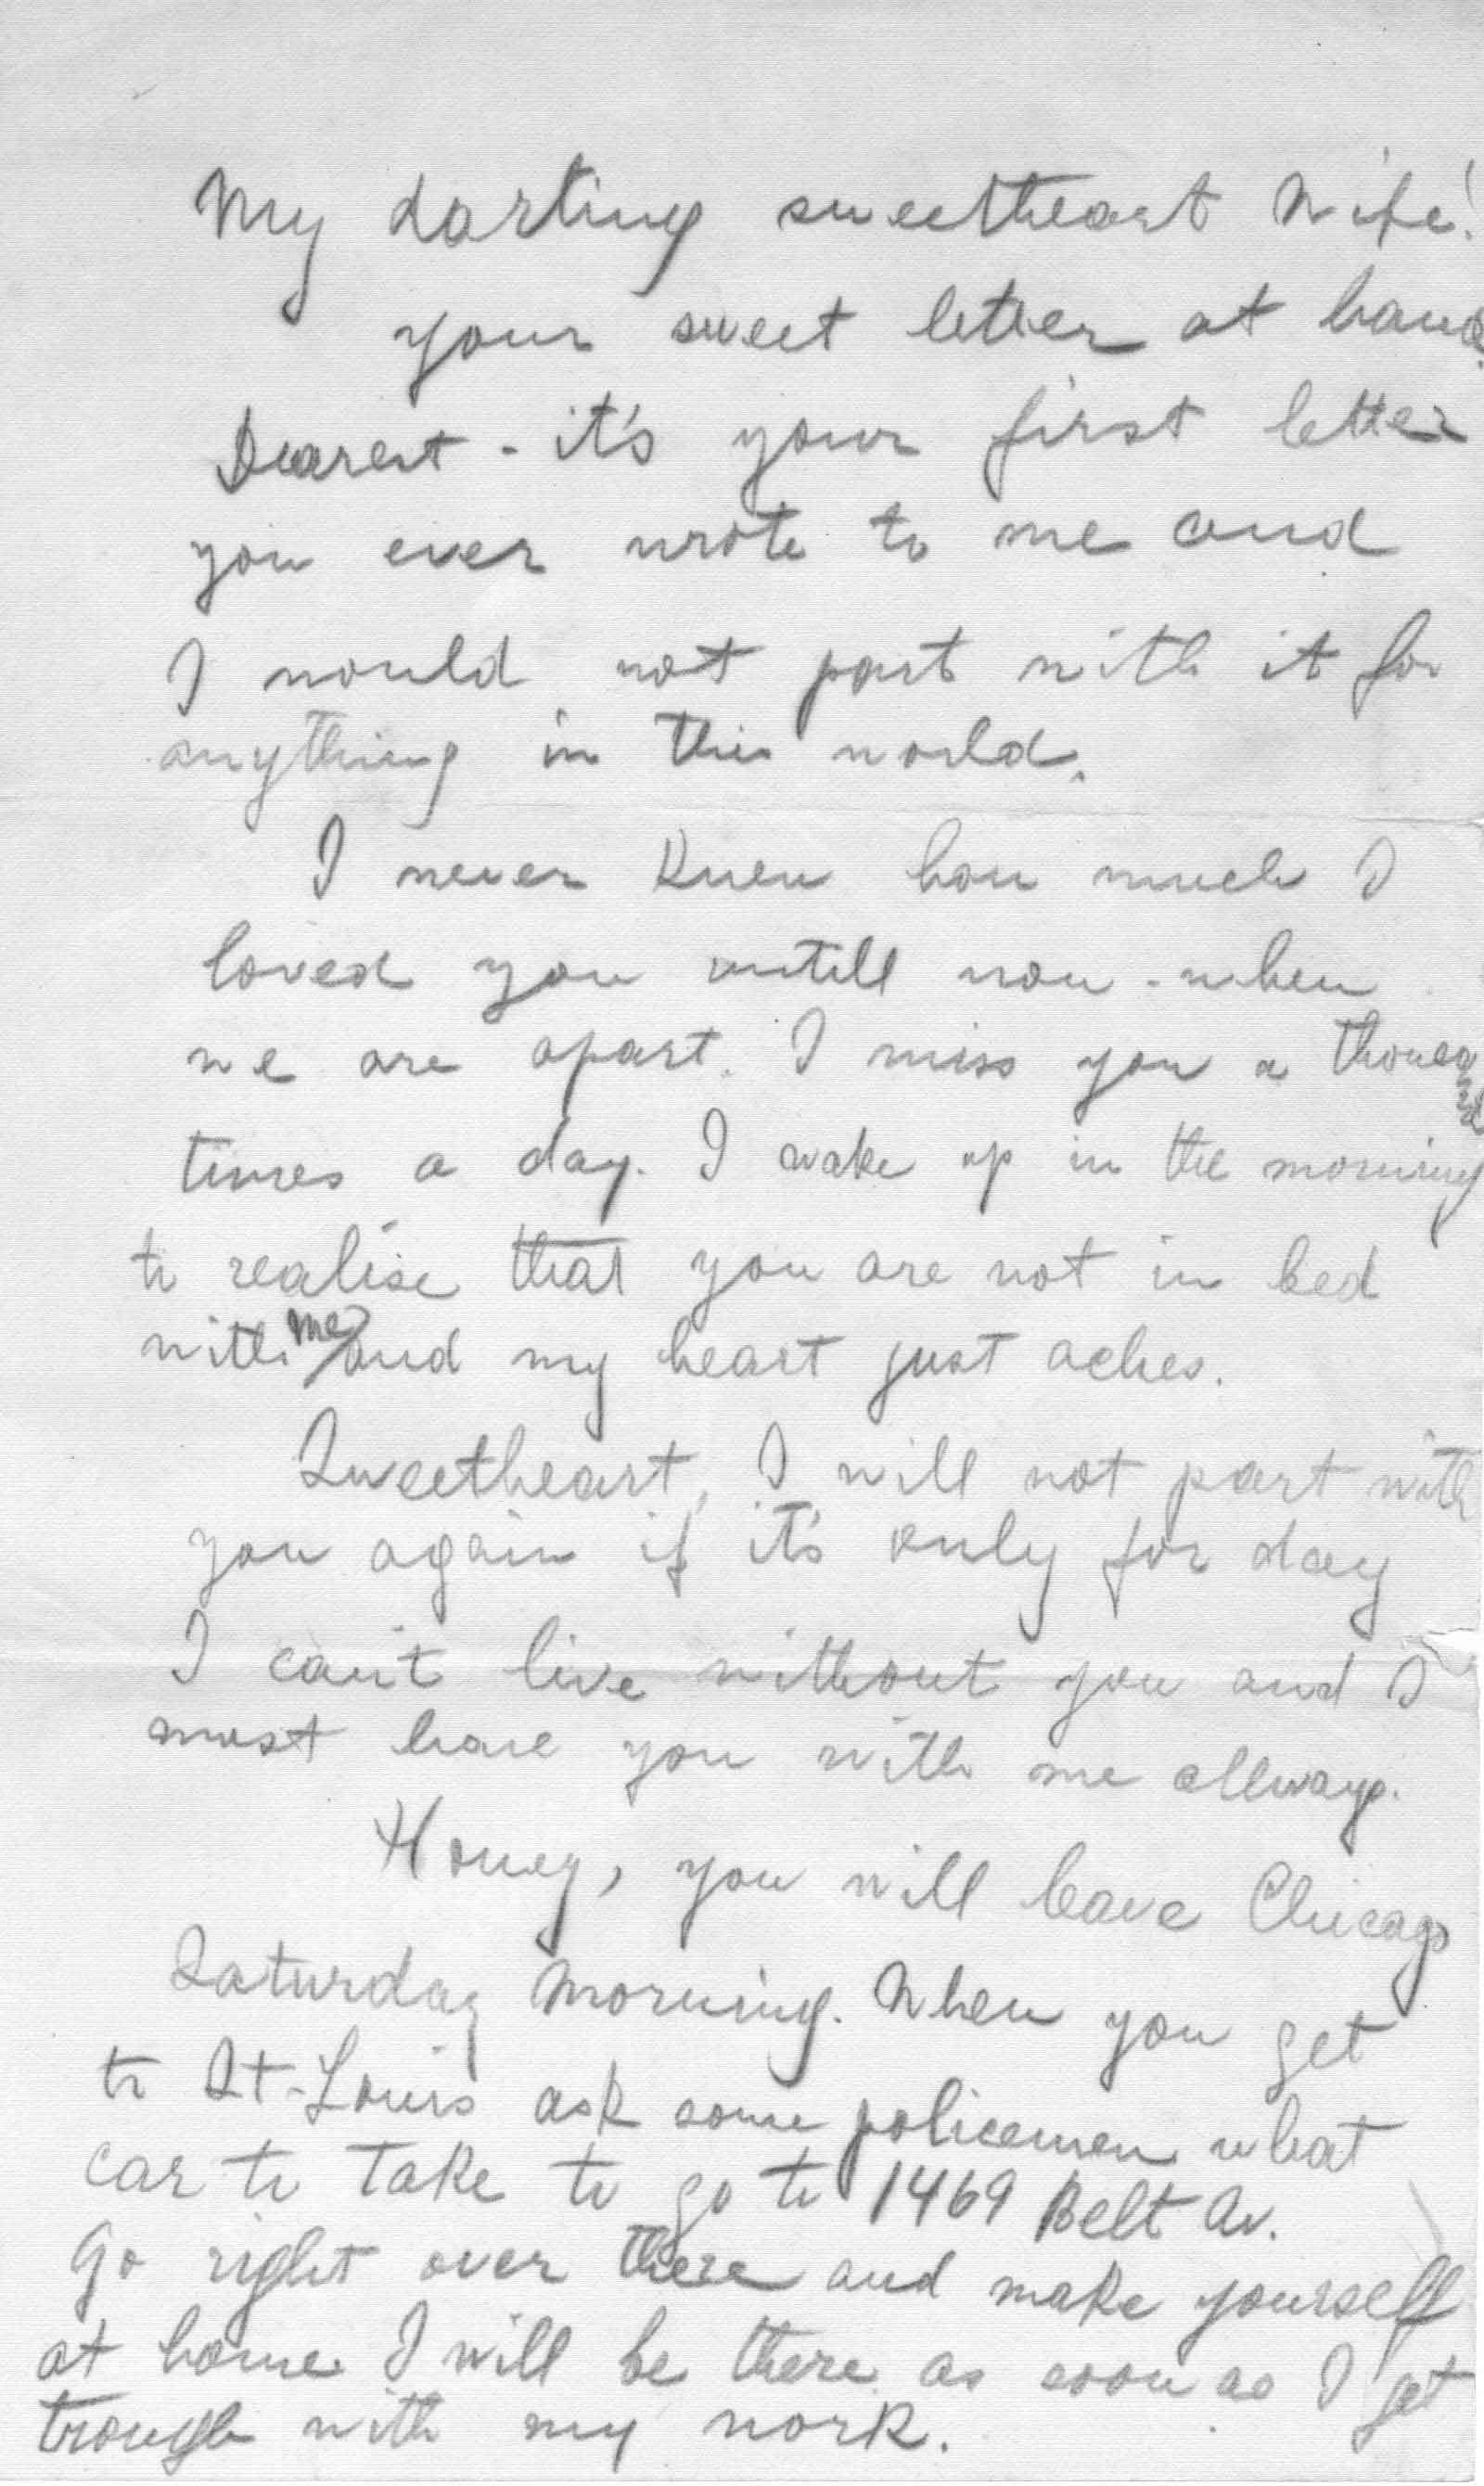 My darling sweetheart Wife!
your sweet letter at hand.
Dearest - it's your first letter
you ever wrote to me and
I would not part with it for
anything in this world.
I never knew how much I
loved you untill now - when
we are apart. I miss you a thousand
times a day. I wake up in the morning
to realise that you are not in bed
with me and my heart just aches.
Sweetheart, I will not part with
you again if it's only for day
I can't live without you and I
must have you with me allways.
Honey, you will leave Chicago
Saturday morning. When you get
to St-Louis ask some policemen what
car to take to go to 1469 Belt Av.
Go right over there and make yourself
at home. I will be there as soon as I get
trough with my work.